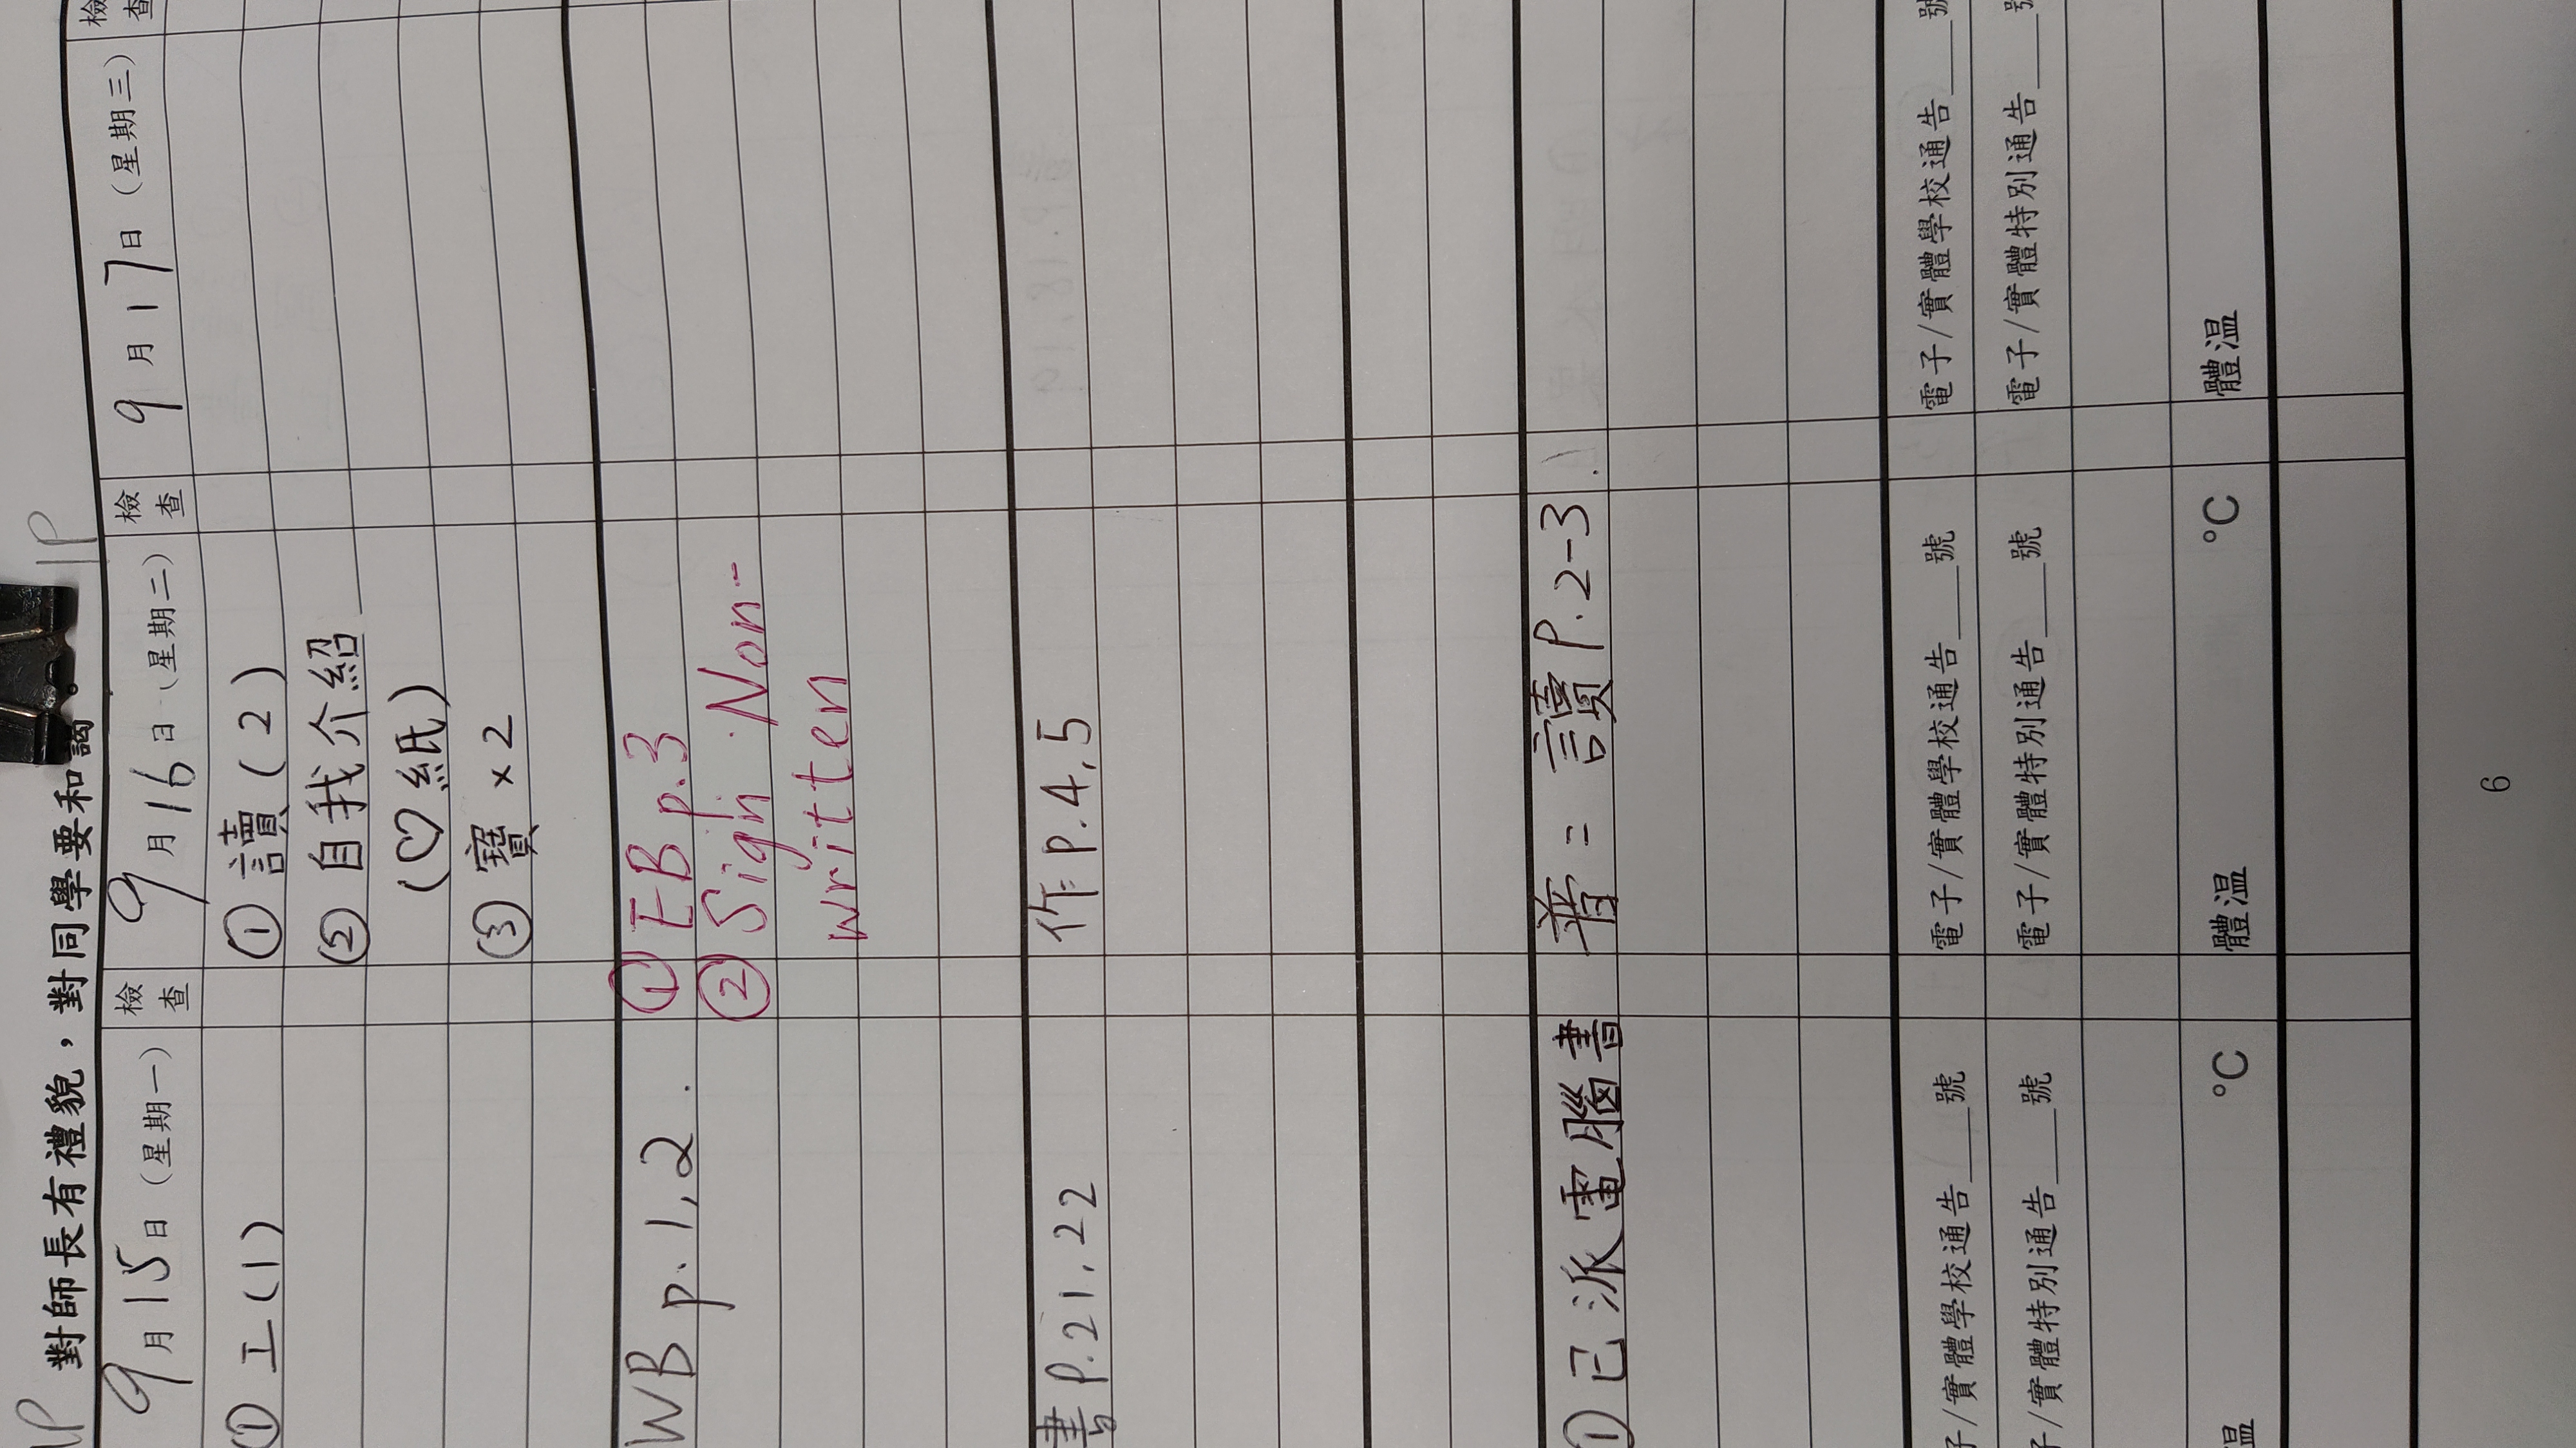 對師長有禮貌，對同學要和謁。
1P
9月15日（星期一）
檢查
9月16日（星期二）
檢查
9月17日（星期三）
檢查
① 工(1)
① 讀(2)
② 自我介紹
(♡紙)
③ 寶×2
WB p.1,2.
① EB p.3
② Sign Non-
written
書P.21,22
作P.4,5
① 已派電腦書
普= 讀P.2-3
子/實體學校通告___號
電子/實體學校通告___號
電子/實體學校通告___號
子/實體特別通告___號
電子/實體特別通告___號
電子/實體特別通告___號
溫 °C
體溫 °C
體溫
6